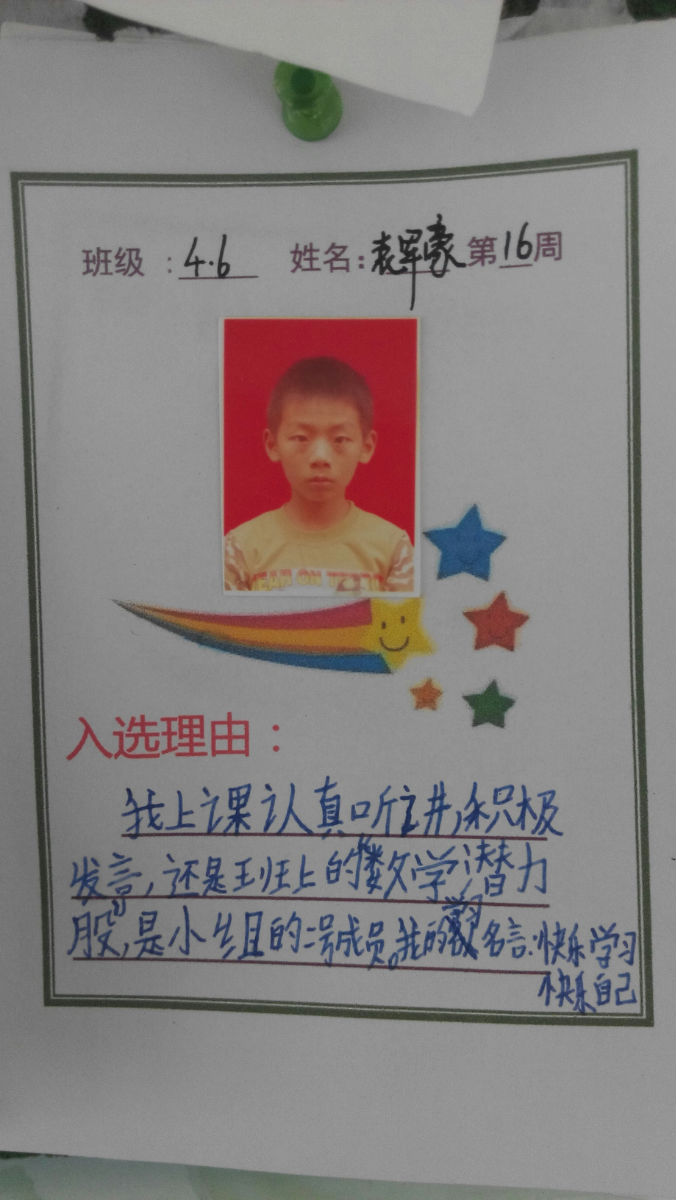 班级：4.6 姓名：袁军豪 第16周
入选理由：
我上课认真听讲,积极
发言,还是班上的“数学潜力
股”,是小组的二号成员。我的学习名言:快乐学习
快乐自己